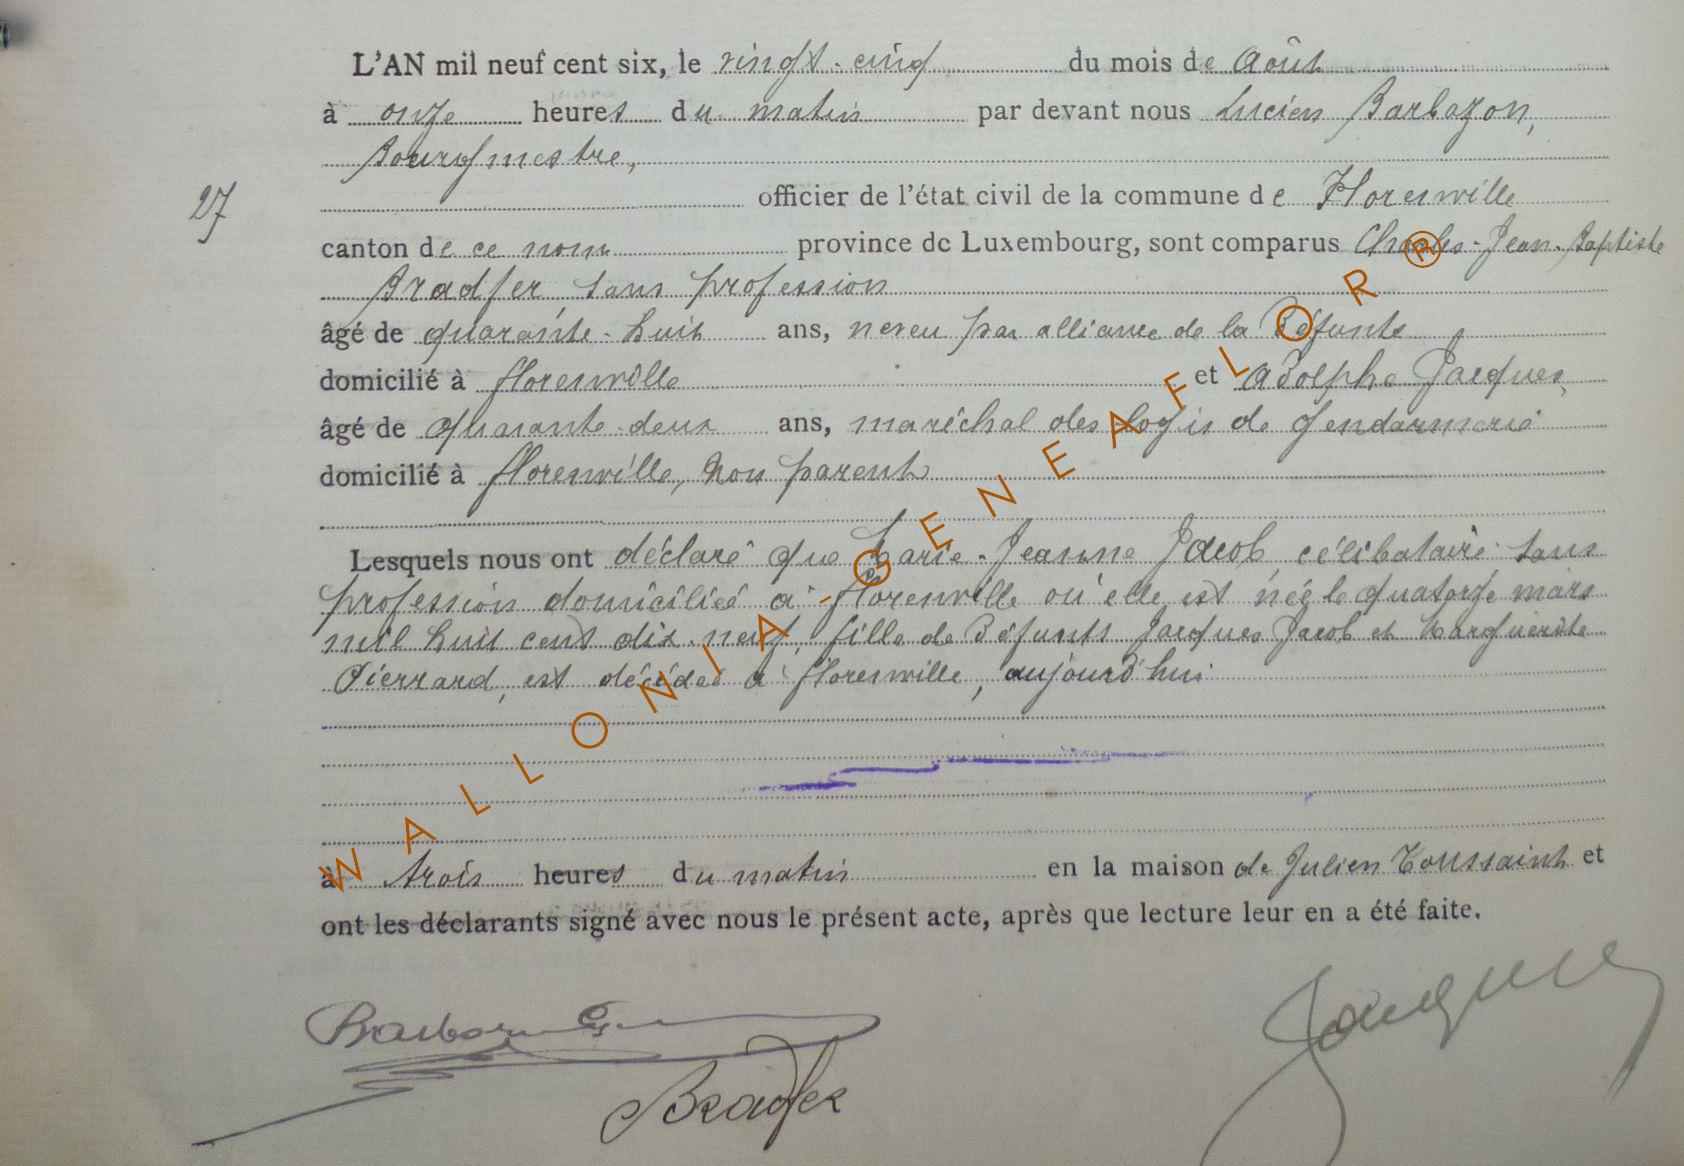 L'AN mil neuf cent six, le vingt-cinq du mois de Août
à onze heures du matin par devant nous Lucien Barbazon,
Bourgmestre,
27
officier de l'état civil de la commune de Florenville
canton de ce nom province de Luxembourg, sont comparus Charles-Jean-Baptiste
Bradfer sans profession
âgé de quarante-huit ans, neveu par alliance de la Défunte
domicilié à florenville et Adolphe Jacques,
âgé de quarante-deux ans, maréchal des logis de gendarmerie
domicilié à florenville, non parent
Lesquels nous ont déclaré que Marie-Jeanne Jacob célibataire sans
profession domiciliée à florenville où elle est née le quatorze mars
mil huit cent dix-neuf, fille de Défunts Jacques Jacob et Marguerite
Pierrard, est décédée à florenville, aujourd'hui
à trois heures du matin en la maison de Julien Toussaint et
ont les déclarants signé avec nous le présent acte, après que lecture leur en a été faite.
Barbazon
Bradfer
Jacques
WALLONIA-GENEAFLOR®